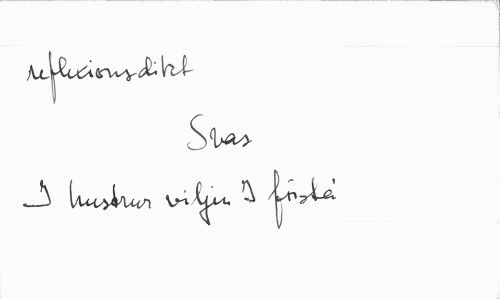 reflexionsdikt
Svar
I hustrur viljen I förstå